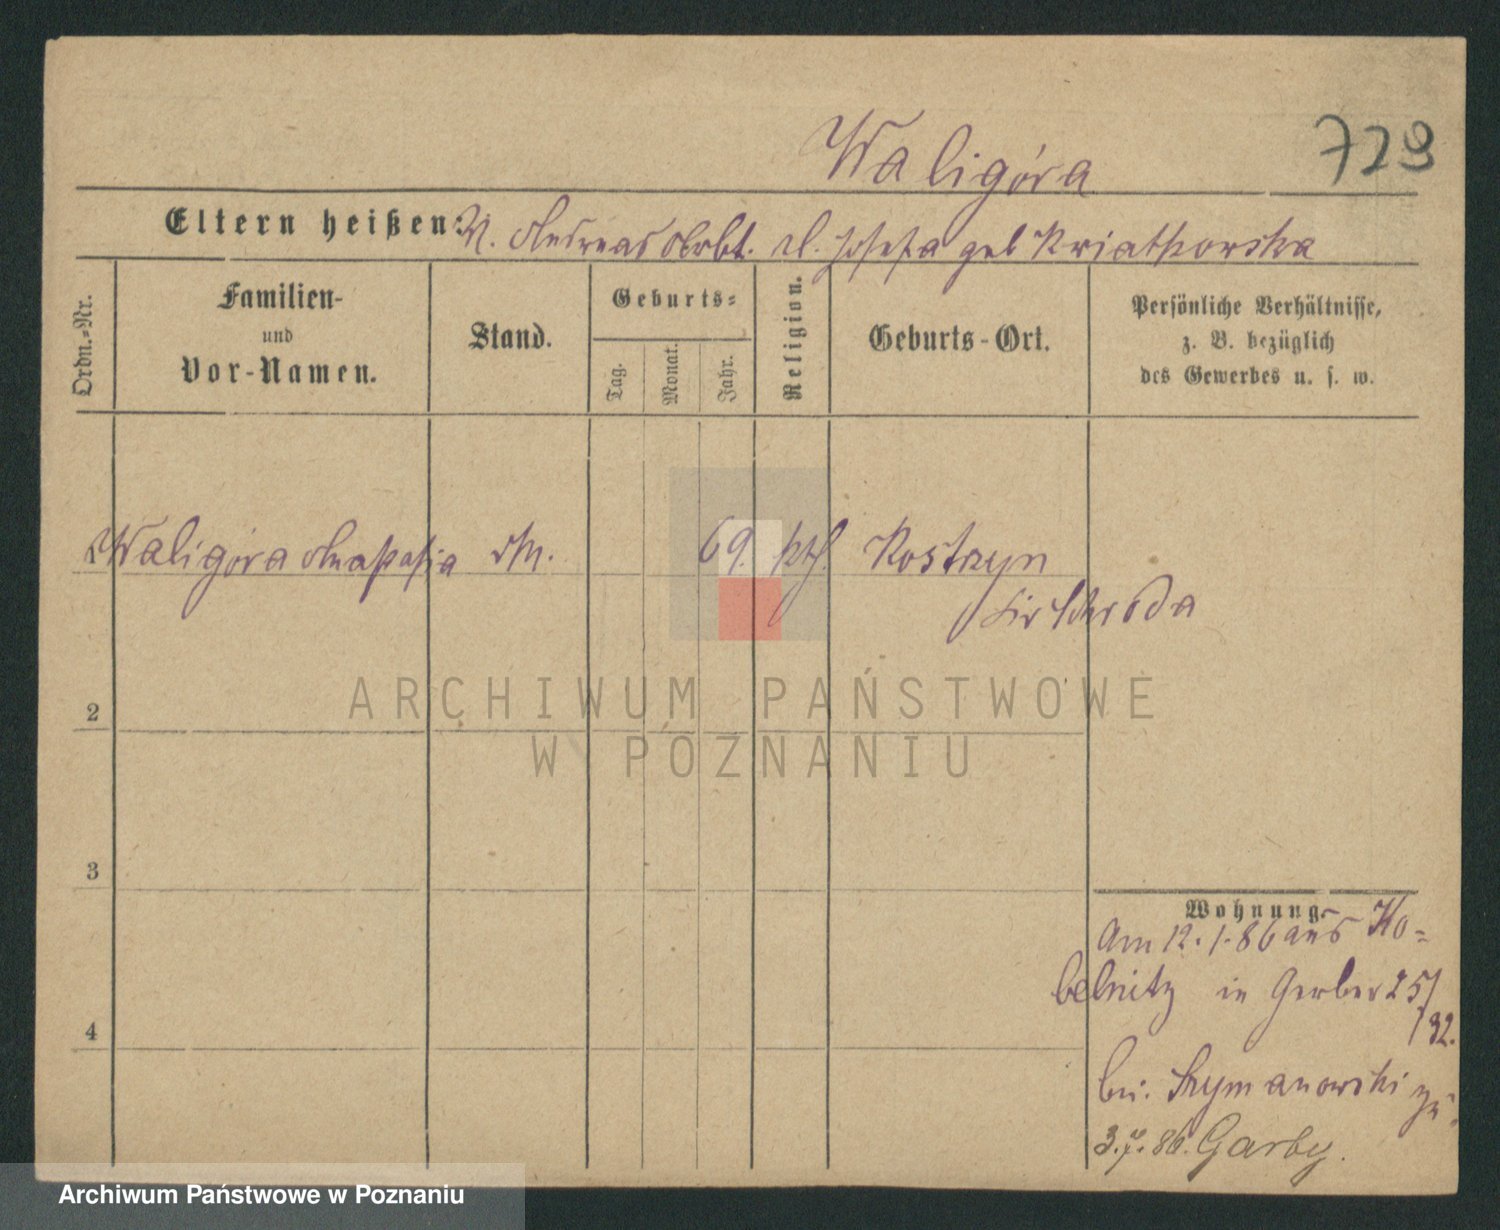 Waligóra
729
Eltern heißen: V. Andreas Arbt. M. Josefa geb Kwiatkowska
Ordn.-Nr.
Familien-
und
Vor-Namen.
Stand.
Geburts-
Tag.
Monat.
Jahr.
Religion.
Geburts-Ort.
Persönliche Verhältnisse,
z. B. bezüglich
des Gewerbes u. s. w.
1 Waligóra Anastasia M. 69. kth. Kostrzyn
Kr Schroda
2
ARCHIWUM PAŃSTWOWE
W POZNANIU
3
Wohnung.
Am 12.1.86 aus Ko-
belnitz in Gerber 25/
/32.
4
bei Szymanowski zu.
3.7.86. Garby.
Archiwum Państwowe w Poznaniu